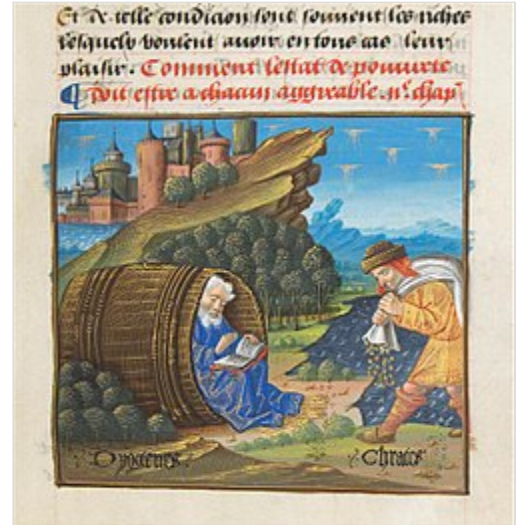 Et de telle condicion sont souvent les riches
lesquels veulent avoir en tous cas leur
plaisir. Comment l'estat de povrete
doit estre a chacun aggreable. chap
Dyogenes.
Chrates